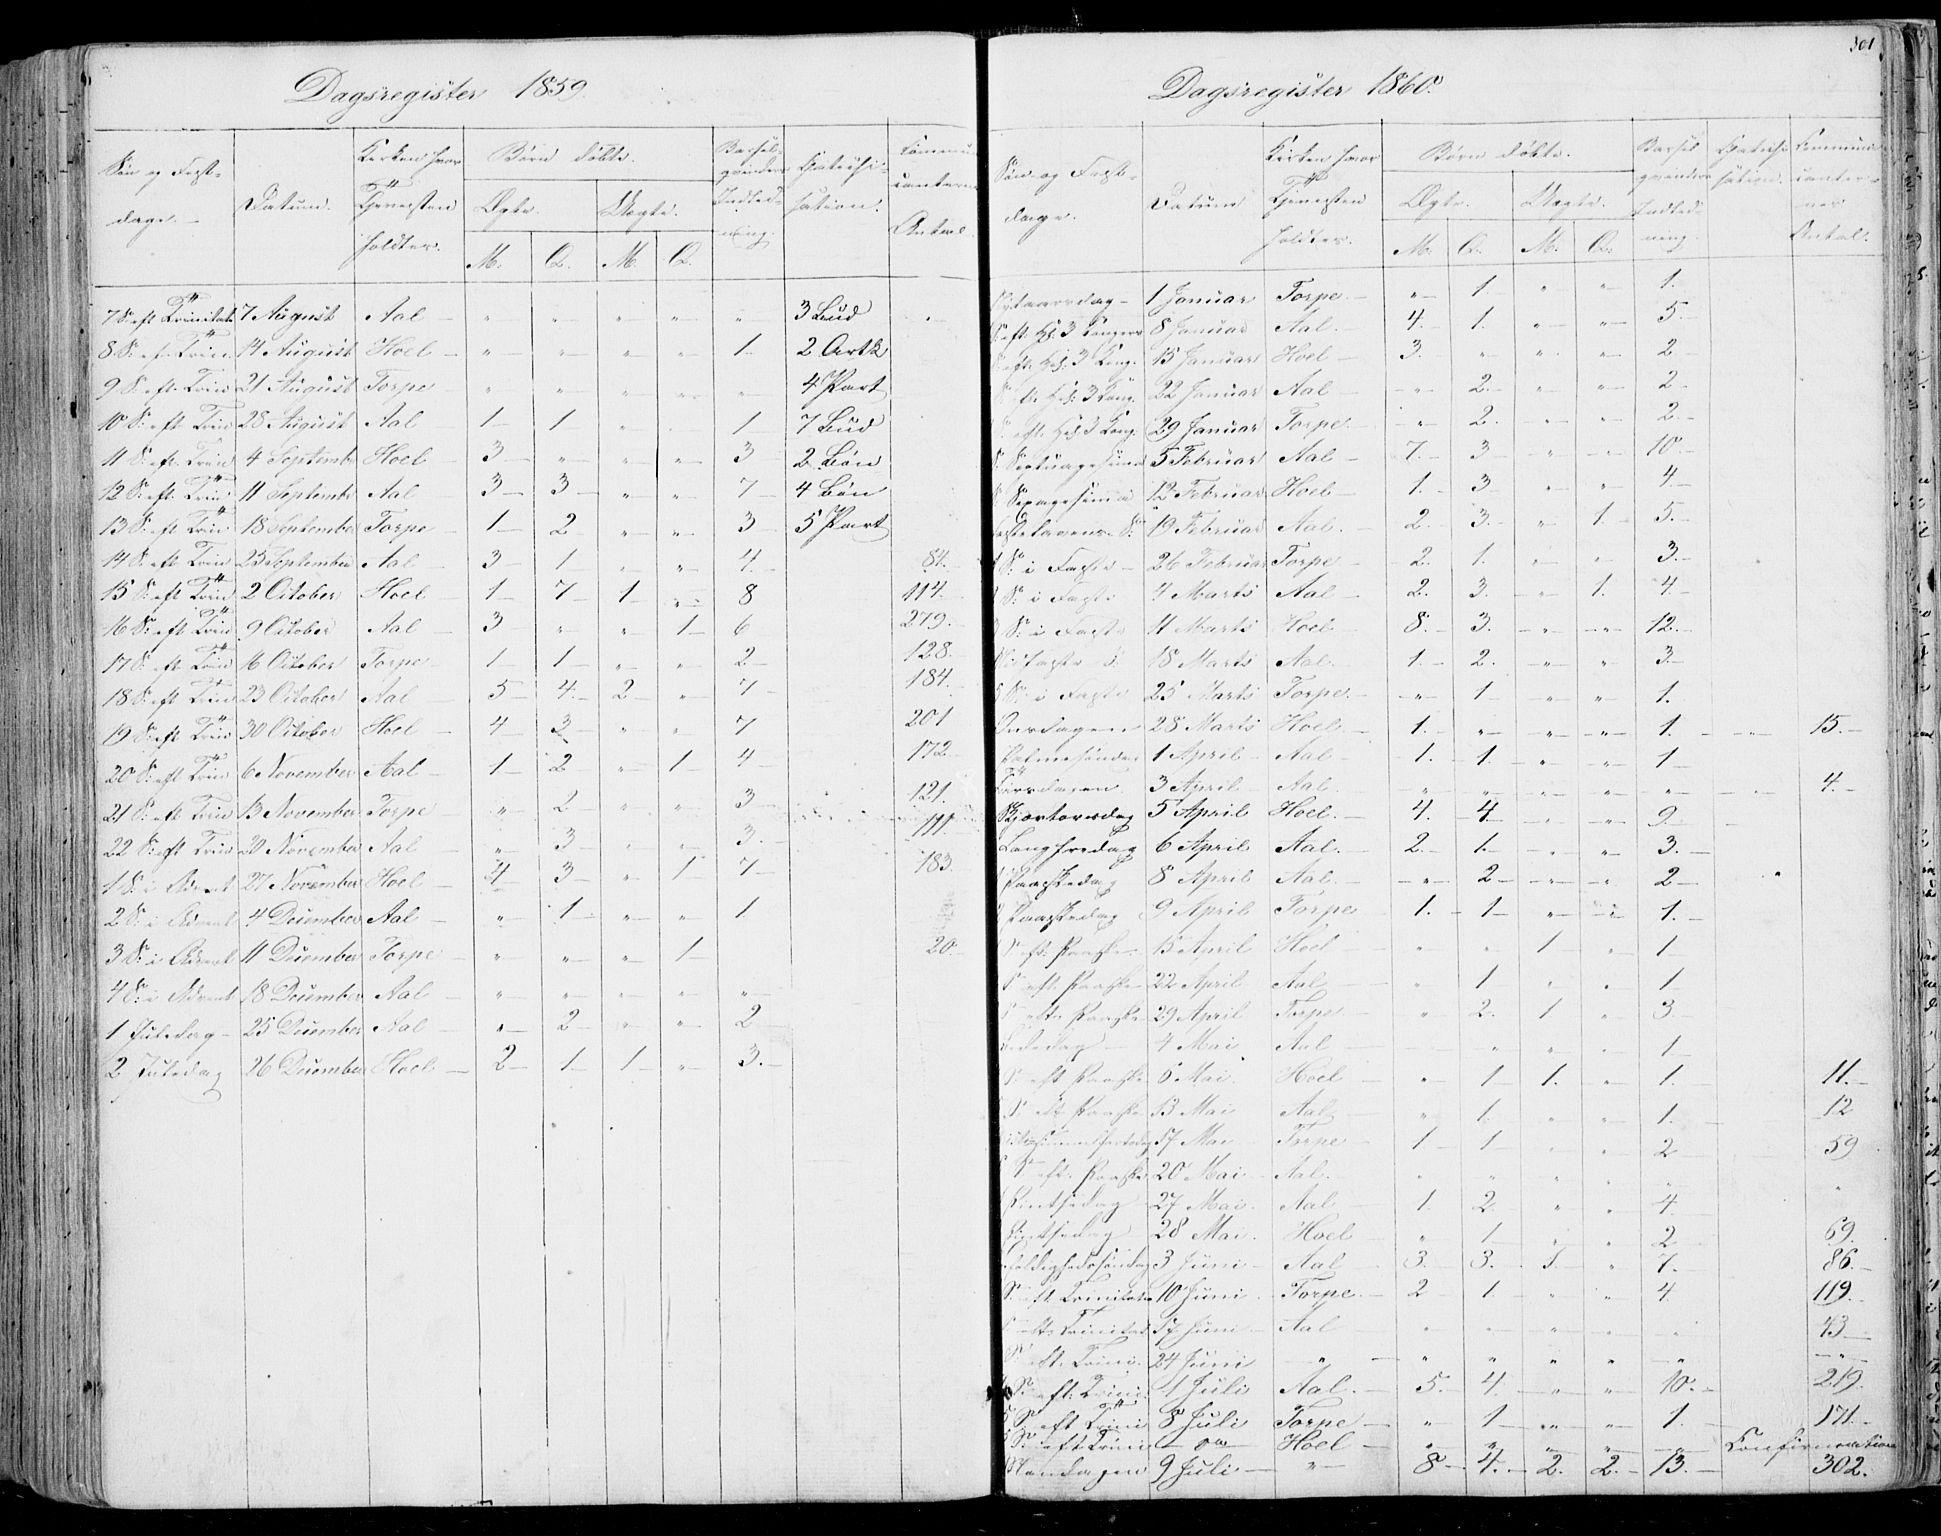 301
Dagsregister 1859.
Søn og Fest-dage. Datum. Kirken hvor Tjenesten holdtes. Børn døbte. Ægte. M. Q. Uægte. M. Q. Barsel-qvinders Indled-ning. Catechi-sation. Communi-canternes Antal.
7 S. eft Trinitatis 7 August Aal — " " " " " 3 Bud "
8 S. ef. Trin 14 August Hoel — " " " " 1 2 Artk
9 S. eft. Trin 21 August Torpe — " " " " " 4 Part
10 S. eft Trin 28 August Aal — 1 1 " " 1 7 Bud
11 S. eft. Trin 4 September Hoel — 3 " " " 3 2 Bøn
12 S. eft. Trin 11 September Aal — 3 3 " " 7 4 Bøn
13 S. eft Trin 18 September Torpe — 1 2 " " 3 5 Part
14 S. eft Trin 25 September Aal — 3 1 " " 4 84.
15 S. eft Trin 2 October Hoel — 1 7 1 " 8 114.
16 S. eft Trin 9 October Aal — 3 " " 1 6 279.
17 S. eft Trin 16 October Torpe — 1 1 " " 2 128.
18 S. eft Trin 23 October Aal — 5 4 2 " 7 184.
19 S. eft Trin 30 October Hoel — 4 3 " " 7 201
20 S. eft Trin 6 November Aal — 1 2 " 1 4 172.
21 S. eft Trin 13 November Torpe " 2 " " 3 121.
22 S. eft Trin 20 November Aal — " 3 " " 3. 111
1 S. i Advent 27 November Hoel — 4 3 " 1 7 183.
2 S. i Advent 4 December Aal — " 1 " " 1
3 S. i Advent 11 December Torpe — " " " 1 20.
4 S. i Advent 18 December Aal — " " " " "
1 Juledag 25 December Aal " 2 " " 2
2 Juledag 26 December Hoel — 2 1 1 " 3.
Dagsregister 1860.
Søn og Fest-dage. Datum Kirken hvor Tjenesten holdtes. Børn døbte. Ægte. M. Q. Uægte. M. Q. Barsel qvinders Indled-ning. Catechi-sation. Communi-canter-nes Antal.
Nytaarsdag 1 Januar Torpe — " 1 " " 1.
S. eft. Hel. 3 Kongers 8 Januar Aal. — 4. 1. " " 5.
S. eft. Hel. 3 Kong. 15 Januar Hoel — 3. " " " 2
S. eft. Hel. 3 Kong. 22 Januar Aal — " 2. " " 2
S. eft. Hel. 3 Kong. 29 Januar Torpe. — " 2. " " 2.
S. Septuagesima 5 Februar Aal — 7. 3 " " 10.
S. Sexagesima 12 Februar Hoel — 1. 3 " " 4
Fastelavens S. 19 Februar Aal. — 2. 3. " 1. 5.
S. i Faste 26 Februar Torpe — 2. 1. " " 3.
S. i Faste 4 Marts Aal — 2. 3. " 1. 4
S. i Faste 11 Marts Hoel — 8. 3. " " 12.
Midfaste S. 18 Marts Aal. — 1. 2. " " 3.
S. i Faste 25 Marts Torpe. — " 1 " " 1.
Onsdagen 28 Marts Hoel. 1. " " " 1. 15.
Palmesøndag 1 April Aal — 1. 1. " " 1
Tirsdagen. 3 April Aal. " " " " " 4.
Skjærtorsdag 5 April Hoel. 4. 4 " " 9.
Langfredag 6 April Aal. — 2. 1. " " 3.
Paaskedag 8 April Aal. — " 2 " " 2
Paaskedag 9 April Torpe — 1. 1 " " 1.
S. eft. Paaske 15 April Hoel " " 1 " 1
S. eft. Paaske 22 April Aal " 1 " " 1
S. eft. Paaske 29 April Torpe " 2. 1 " 3
Bededag 4 Mai Aal — " " " 1
S. eft Paaske 6 Mai. Hoel — " 1 1. " 1. 11.
S. eft Paaske 13 Mai Aal " 1. " " 1. 12
17 Mai Torpe — 1 1 " " 2 59
S. eft. Paaske 20 Mai Aal. " " " " " "
Pintsedag 27 Mai. Aal — 1. 2. " " 4.
Pintsedag 28 Mai. Hoel — " 1 " " 2 69.
Trefoldighedssøndag 3 Juni Aal — 3. 3. 1. " 7. 86.
S. eft. Trinitatis 10 Juni Torpe. — 2 1. " " 4 119.
S. eft. Trinitat 17 Juni Aal " " " " " 43
S. eft. Trini. 24 Juni " " " " " " "
S. eft. Trini 1 Juli Aal. — 5. 4. " " 10. 219.
5 S. eft Trini 8 Juli Torpe — " 1 " " 1. 171.
5 S. eft Trini Hoel — " " " " " Confirmation
Mandagen 9 Juli " 8 4. 2. 2. 13. 302.